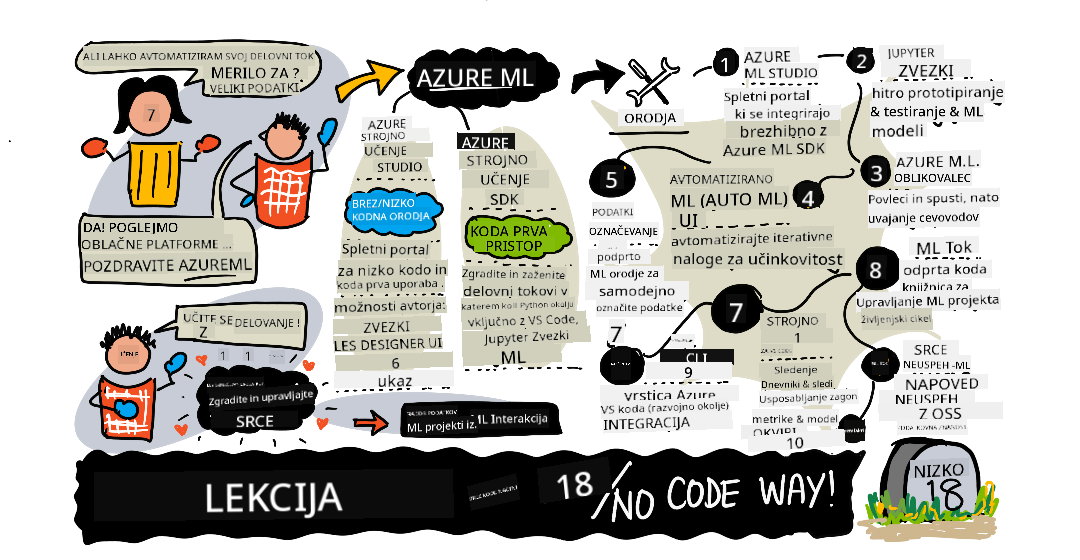 ALI LAHKO AVTOMATIZIRAM SVOJ DELOVNI TOK
MERILO ZA ?
VELIKI PODATKI
7
DA! POGLEJMO
OBLAČNE PLATFORME ...
POZDRAVITE AZUREML
AZURE ML
AZURE
STROJNO
UČENJE
STUDIO
BREZ/NIZKO
KODNA ORODJA
Spletni portal
za nizko kodo in
koda prva uporaba .
možnosti avtorja:
ZVEZKI
LES DESIGNER UI
6
ukaz
AZURE
STROJNO
UČENJE
SDK
KODA PRVA
PRISTOP
Zgradite in zaženite
delovni tokovi v
katerem koli Python okolju
vključno z VS Code,
Jupyter Zvezki
ML
ORODJA
1
AZURE
ML STUDIO
Spletni portal
ki se integrirajo
brezhibno z
Azure ML SDK
2
JUPYTER
ZVEZKI
hitro prototipiranje
& testiranje & ML
modeli
3
AZURE M.L.
OBLIKOVALEC
Povleci in spusti, nato
uvajanje cevovodov
AVTOMATIZIRANO
ML (AUTO ML)
4
UI
avtomatizirajte iterativne
naloge za učinkovitost
5
PODATKI
OZNAČEVANJE
podprto
ML orodje za
samodejno
označite podatke
7
CLI
9
vrstica Azure
VS koda (razvojno okolje)
INTEGRACIJA
7
STROJNO
1
Sledenje
Dnevniki & sledi
Usposabljanje zagon
metrike & model
OKVIRI
10
8
ML Tok
odprta koda
knjižnica za
Upravljanje ML projekta
življenjski cikel
SRCE
NEUSPEH -ML
NAPOVED
NEUSPEH
Z OSS
UČITE SE DELOVANJE !
Z
1 1
Zgradite in upravljajte
SRCE
ML projekti iz
ML Interakcija
LEKCIJA
18
/NO CODE WAY!
NIZKO
18